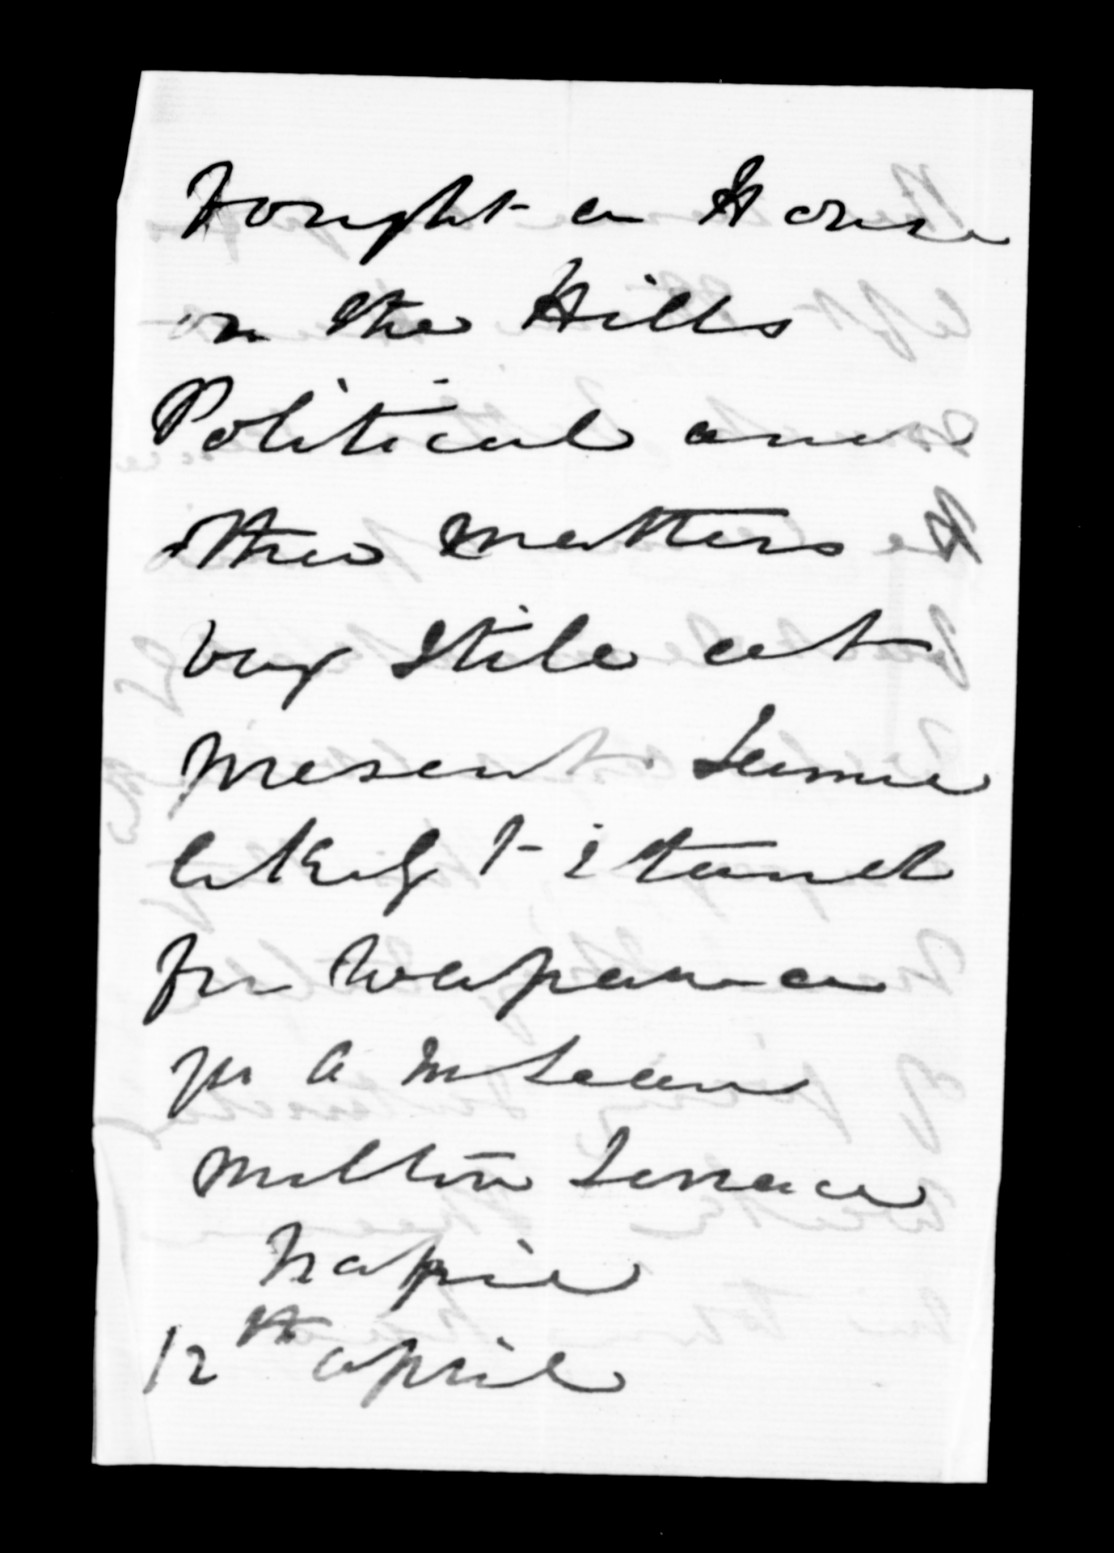 bought a House
on the Hills
Political and
other matters
very still at
present
likely to stand
for Waipawa
A McLean
Milton Terrace
Napier
12th April